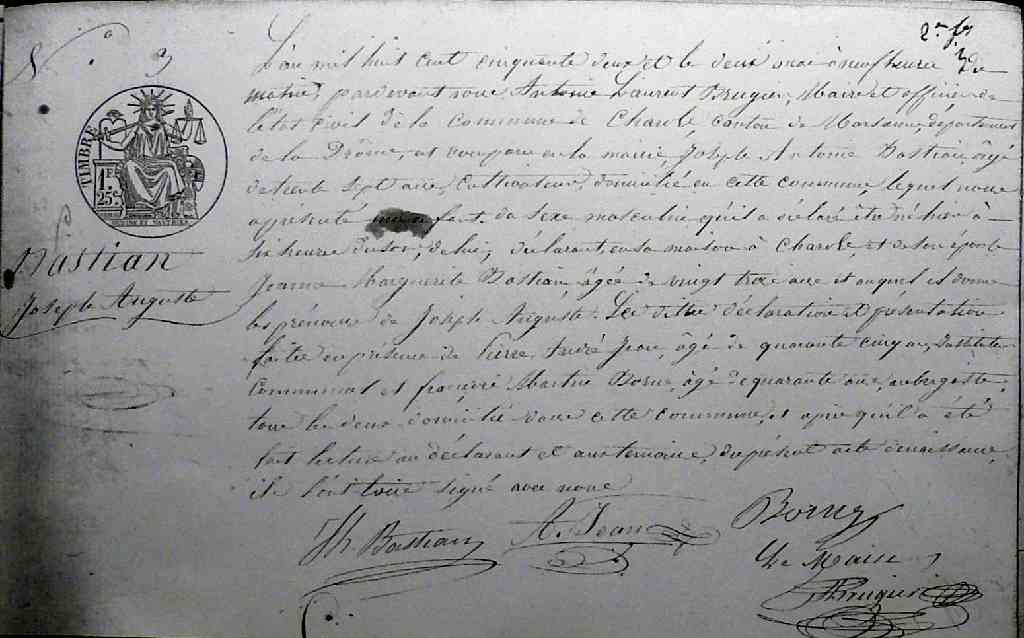 N.° 3
2e f
3
L'an mil huit cent cinquante deux et le deux mai à neuf heures du
matin, pardevant nous Antoine Laurent Brugier, Maire et officier de
l'état civil de la Commune de Charols, canton de Marsanne, département
de la Drôme, est comparu en la mairie Joseph Antoine Bastian, âgé
de trente sept ans, Cultivateur, domicilié en cette commune lequel nous
a présenté un enfant du sexe masculin qu'il a déclaré être né hier à
six heures du soir, de lui, déclarant, en sa maison à Charols, et de son épouse
Jeanne Marguerite Bastian, âgée de vingt trois ans et auquel il donne
les prénoms de Joseph Auguste. Les dites déclaration et présentation
faites en présence de Pierre André Jean, âgé de quarante cinq ans, Instituteur
Communal et françois Martin Borne âgé de quarante ans, aubergiste,
tous les deux domiciliés dans cette commune, et après qu'il a été
fait lecture au déclarant et aux témoins, du présent acte de naissance,
ils l'ont tous signé avec nous
TIMBRE
1F.
25c.
Bastian
Joseph Auguste
Jh. Bastian
A. Jean
Borne
Le Maire
Brugier